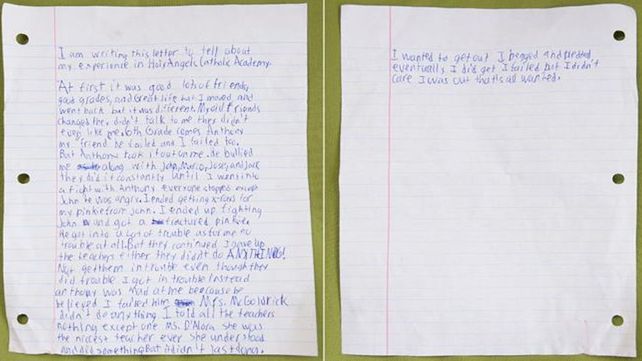 I am writing this letter to tell about
my experience in Holy Angels Catholic Academy.
At first it was good lots of friends,
good grades, and great life but I moved and
went back but it was different. My old friends
changed they didn't talk to me they didn't
even like me. 6th Grade comes Anthony
my friend he failed and I failed too.
But Anthony took it out on me. he bullied
me along with John, Marco, Jose, and Jack
they did it constantly until I went into
a fight with Anthony everyone stopped except
John he was angry. I ended getting x-rays for
my pinkie from John. I ended up fighting
John and got a fractured pinkie.
He got into a lot of trouble as for me no
trouble at all. But they continued I gave up
the teachers either they didn't do ANYTHING!
Not get them in trouble even though they
did trouble I got in trouble instead
anthony was mad at me because he
believed I failed him Mrs. McGoldrick
didn't do anything I told all the teachers
nothing except one Ms. D'Alora she was
the nicest teacher ever she understood
and did something But it didn't last long.
I wanted to get out I begged and pleaded
eventually I did get I failed but I didn't
care I was out that's all wanted.